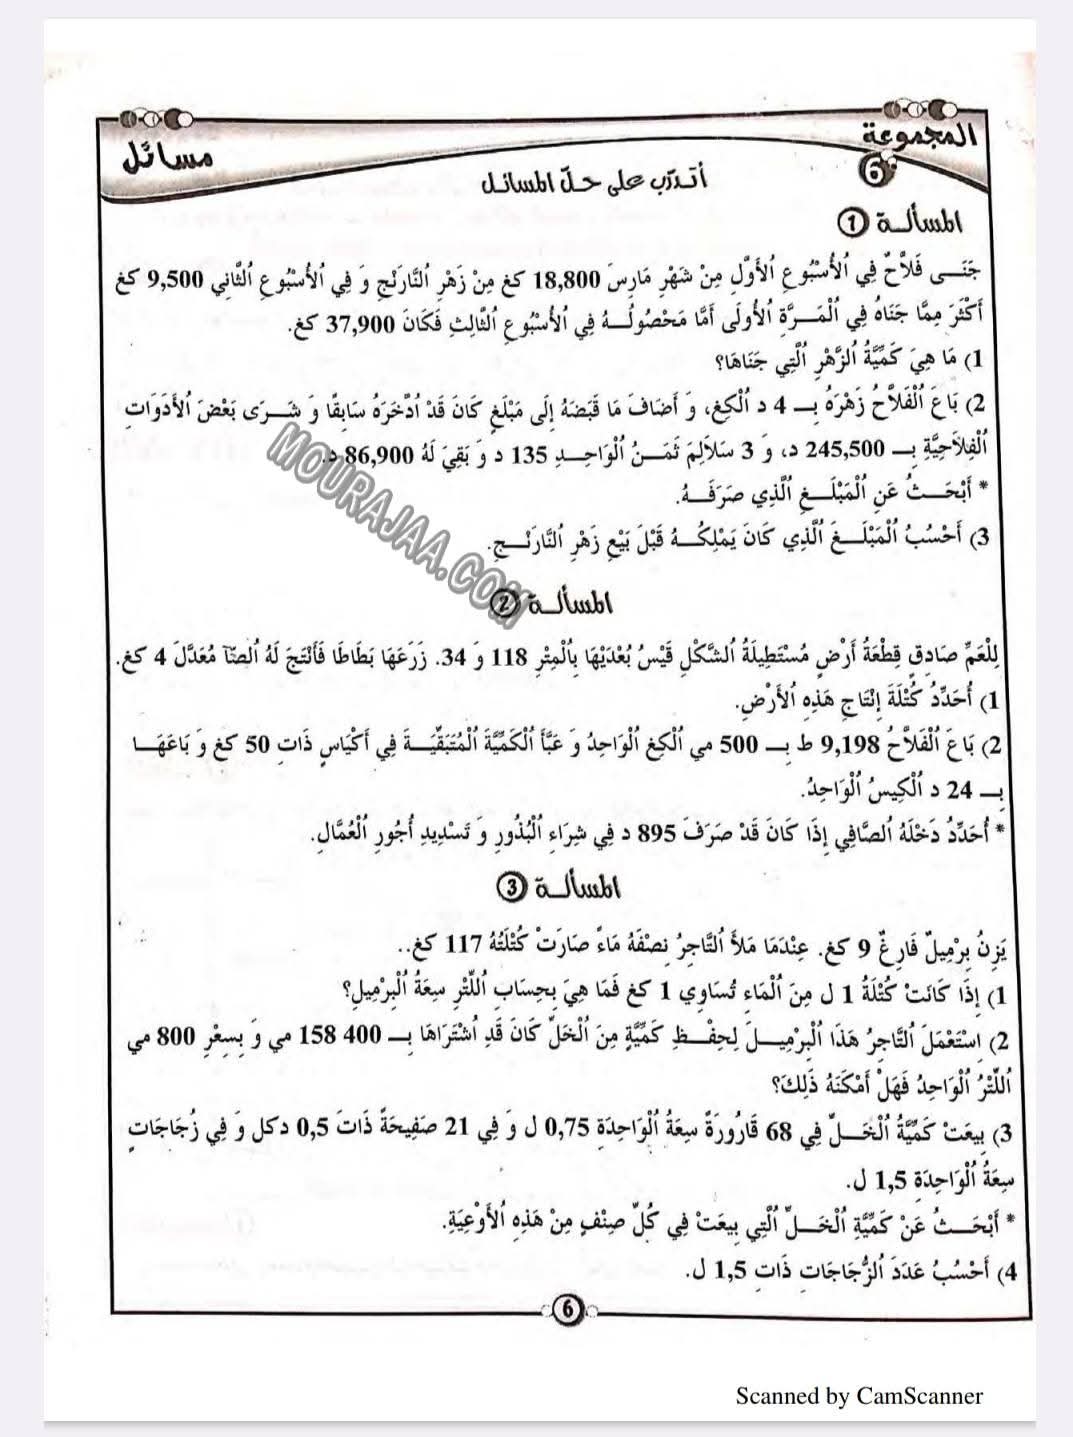 المجموعة
6
مسائل
أتدرّب على حلّ المسائل
المسألة 1
جَنَى فَلَّاحٌ فِي الْأُسْبُوعِ الْأَوَّلِ مِنْ شَهْرِ مَارِسَ 18,800 كغ مِنْ زَهْرِ النَّارَنْجِ وَ فِي الْأُسْبُوعِ الثَّانِي 9,500 كغ
أَكْثَرَ مِمَّا جَنَاهُ فِي الْمَرَّةِ الْأُولَى أَمَّا مَحْصُولُهُ فِي الْأُسْبُوعِ الثَّالِثِ فَكَانَ 37,900 كغ.
1) مَا هِيَ كَمِّيَّةُ الزَّهْرِ الَّتِي جَنَاهَا؟
2) بَاعَ الْفَلَّاحُ زَهْرَهُ بِـ 4 د الْكِغ، وَ أَضَافَ مَا قَبَضَهُ إِلَى مَبْلَغٍ كَانَ قَدْ ادَّخَرَهُ سَابِقًا وَ شَرَى بَعْضَ الْأَدَوَاتِ
الْفِلَاحِيَّةِ بِـ 245,500 د، وَ 3 سَلَالِمَ ثَمَنُ الْوَاحِدِ 135 د وَ بَقِيَ لَهُ 86,900 د.
* أَبْحَثُ عَنِ الْمَبْلَغِ الَّذِي صَرَفَهُ.
3) أَحْسُبُ الْمَبْلَغَ الَّذِي كَانَ يَمْلِكُهُ قَبْلَ بَيْعِ زَهْرِ النَّارَنْجِ.
MOURAJAA.COM
المسألة 2
لِلْعَمِّ صَادِقٍ قِطْعَةُ أَرْضٍ مُسْتَطِيلَةُ الشَّكْلِ قَيْسُ بُعْدَيْهَا بِالْمِتْرِ 118 وَ 34. زَرَعَهَا بَطَاطَا فَأَنْتَجَ لَهُ الصّآ مُعَدَّلَ 4 كغ.
1) أُحَدِّدُ كُتْلَةَ إِنْتَاجِ هَذِهِ الْأَرْضِ.
2) بَاعَ الْفَلَّاحُ 9,198 ط بِـ 500 مي الْكِغ الْوَاحِدُ وَ عَبَّأَ الْكَمِّيَّةَ الْمُتَبَقِّيَةَ فِي أَكْيَاسٍ ذَاتِ 50 كغ وَ بَاعَهَا
بِـ 24 د الْكِيسُ الْوَاحِدُ.
* أُحَدِّدُ دَخْلَهُ الصَّافِي إِذَا كَانَ قَدْ صَرَفَ 895 د فِي شِرَاءِ الْبُذُورِ وَ تَسْدِيدِ أُجُورِ الْعُمَّالِ.
المسألة 3
يَزِنُ بِرْمِيلٌ فَارِغٌ 9 كغ. عِنْدَمَا مَلَأَ التَّاجِرُ نِصْفَهُ مَاءً صَارَتْ كُتْلَتُهُ 117 كغ..
1) إِذَا كَانَتْ كُتْلَةُ 1 ل مِنَ الْمَاءِ تُسَاوِي 1 كغ فَمَا هِيَ بِحِسَابِ اللِّتْرِ سِعَةُ الْبِرْمِيلِ؟
2) اِسْتَعْمَلَ التَّاجِرُ هَذَا الْبِرْمِيلَ لِحِفْظِ كَمِّيَّةٍ مِنَ الْخَلِّ كَانَ قَدِ اشْتَرَاهَا بِـ 400 158 مي وَ بِسِعْرِ 800 مي
اللِّتْرُ الْوَاحِدُ فَهَلْ أَمْكَنَهُ ذَلِكَ؟
3) بِيعَتْ كَمِّيَّةُ الْخَلِّ فِي 68 قَارُورَةً سِعَةُ الْوَاحِدَةِ 0,75 ل وَ فِي 21 صَفِيحَةً ذَاتَ 0,5 دكل وَ فِي زُجَاجَاتٍ
سِعَةُ الْوَاحِدَةِ 1,5 ل.
* أَبْحَثُ عَنْ كَمِّيَّةِ الْخَلِّ الَّتِي بِيعَتْ فِي كُلِّ صِنْفٍ مِنْ هَذِهِ الْأَوْعِيَةِ.
4) أَحْسُبُ عَدَدَ الزُّجَاجَاتِ ذَاتِ 1,5 ل.
6
Scanned by CamScanner